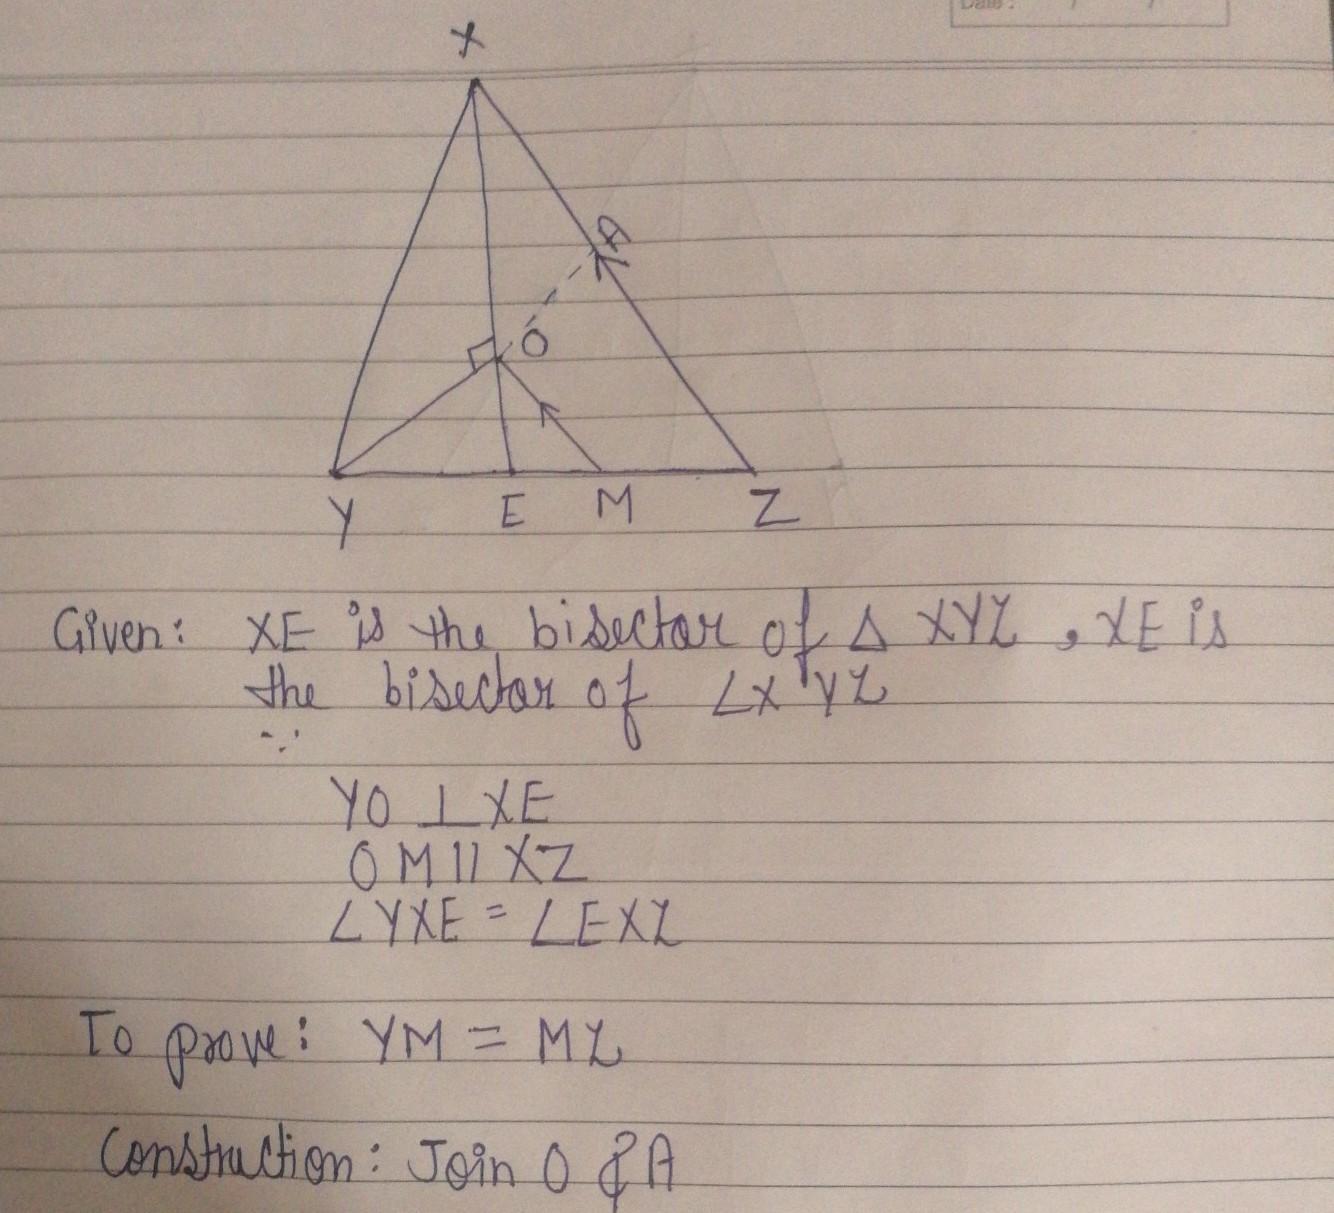 Date: / /
X
A
O
Y E M Z
Given: XE is the bisector of Δ XYZ, XE is
the bisector of ∠XYZ
∵
YO ⊥ XE
OM || XZ
∠YXE = ∠EXZ
To prove: YM = MZ
Construction: Join O & A